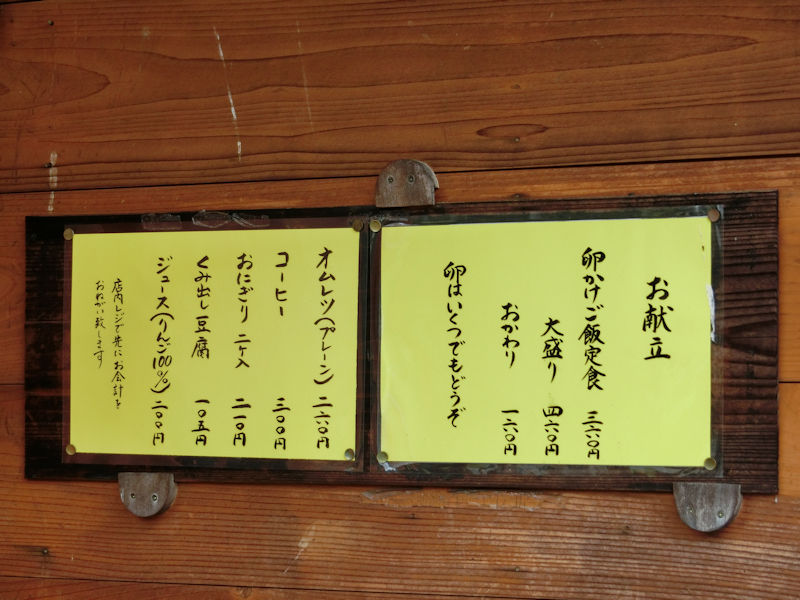 お献立
卵かけご飯定食 三六〇円
大盛り 四六〇円
おかわり 一六〇円
卵はいくつでもどうぞ
オムレツ(プレーン) 二六〇円
コーヒー 三〇〇円
おにぎり 二ケ入 二一〇円
くみ出し豆腐 一〇五円
ジュース(りんご100%) 二〇〇円
店内レジで先にお会計を
おねがい致します